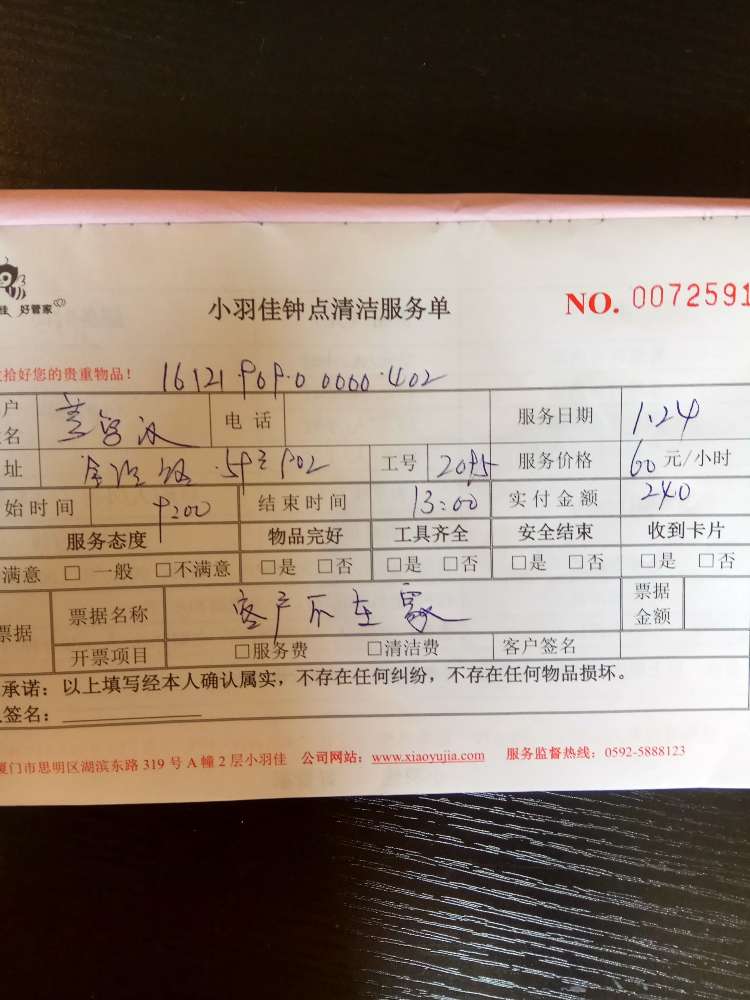 佳 好管家
小羽佳钟点清洁服务单
NO. 0072591
拾好您的贵重物品!
户名 电话 服务日期 1.24
址 工号 2095 服务价格 60元/小时
始时间 9:00 结束时间 13:00 实付金额 240
服务态度 物品完好 工具齐全 安全结束 收到卡片
满意 □ 一般 □不满意 □是 □否 □是 □否 □是 □否 □是 □否
票据 票据名称 客户不在家 票据金额
开票项目 □服务费 □清洁费 客户签名
承诺:以上填写经本人确认属实,不存在任何纠纷,不存在任何物品损坏。
签名:
厦门市思明区湖滨东路 319 号 A 幢 2 层小羽佳 公司网站:www.xiaoyujia.com 服务监督热线:0592-5888123